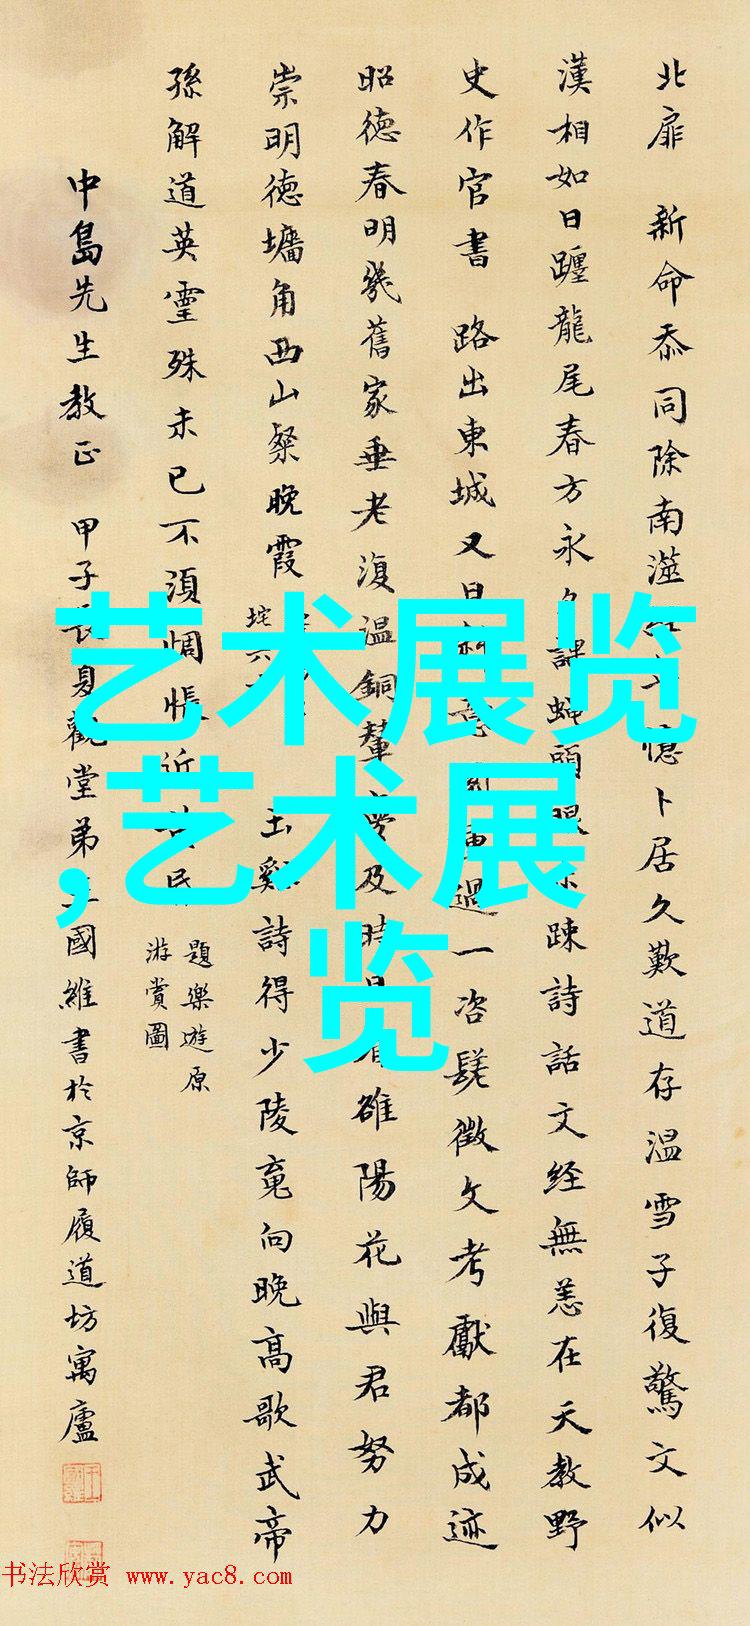 北扉 新命忝同除南澨
憶卜居久歎道存温雪子復驚文似
漢相如日躔龍尾春方永
蝇頭
疎詩話文經無恙在天教野
史作官書 路出東城又日斜
過一咨嗟徵文考獻都成迹
昭德春明幾舊家垂老復温銅輦
及時
雒陽花與君努力
崇明德墉角西山粲晚霞
玉谿詩得少陵竟向晚高歌武帝
孫解道英靈殊未已不須惆悵近
題樂遊原
游賞圖
中島先生教正 甲子長夏觀堂弟王國維書於京師履道坊寓廬
艺术展览
,艺术展
览
书法欣赏 www.yac8.com